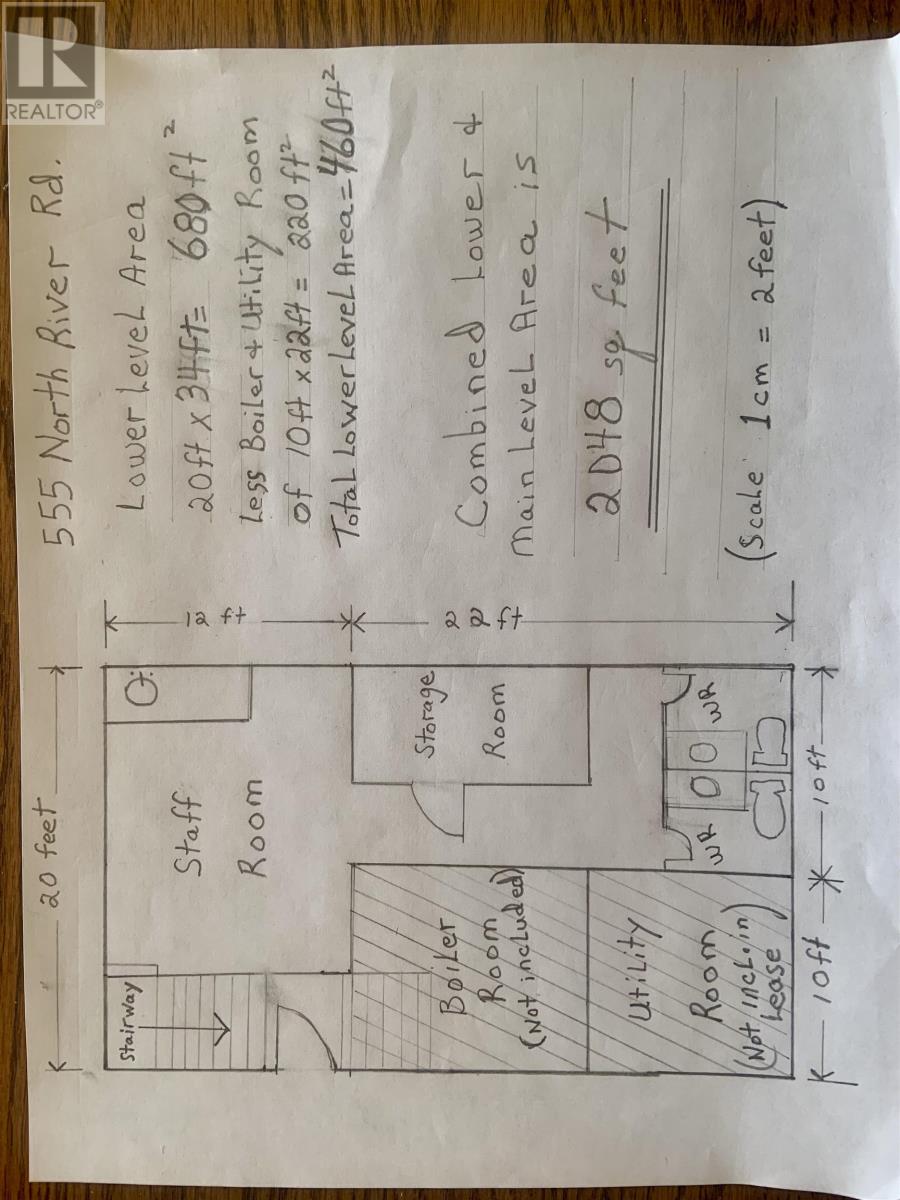 REALTOR®
555 North River Rd.
Lower Level Area
20ft x 34ft = 680ft²
Less Boiler & Utility Room
of 10ft x 22ft = 220ft²
Total Lower Level Area = 460ft²
Combined Lower &
Main Level Area is
2048 sq feet
(Scale 1cm = 2feet)
20 feet
12
ft
22
ft
Stairway
Staff
Room
Storage
Room
Boiler
Room
(Not included)
Utility
Room
(Not incl. in
Lease
WR
WR
10ft
10ft